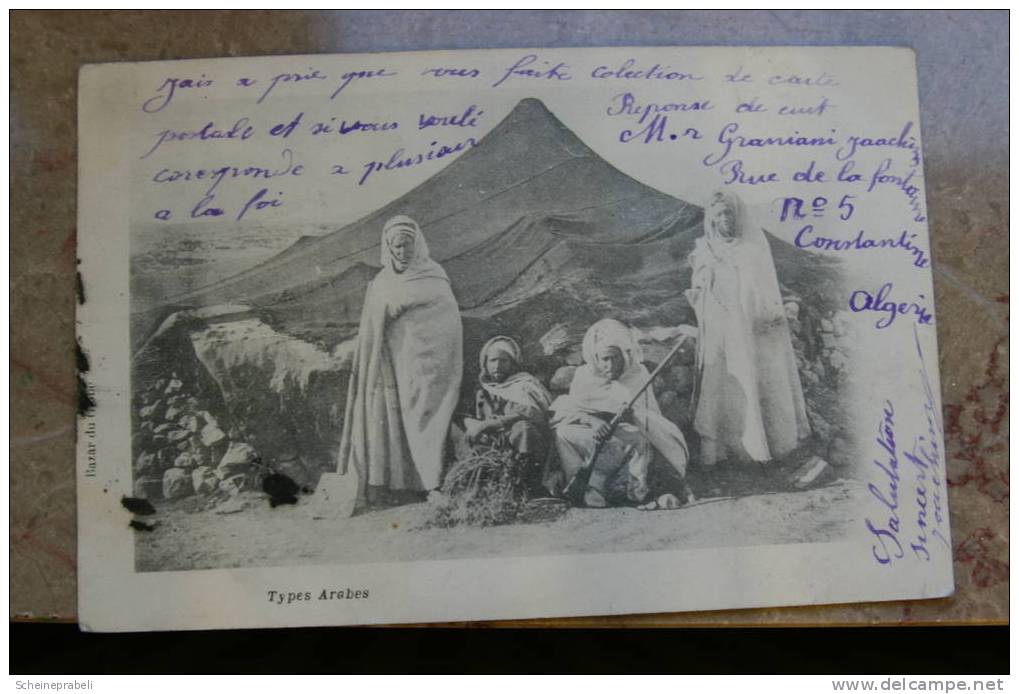 jais a prie que vous faite colection de carte
postale et si vous voulé
coresponde a plusiaur
a la foi
Reponse de cuit
M.r Graniani Jaachin
Rue de la fontaine
No 5
Constantine
Algerie
Salutation
sincert
Bazar du
Types Arabes
Scheineprabeli
www.delcampe.net